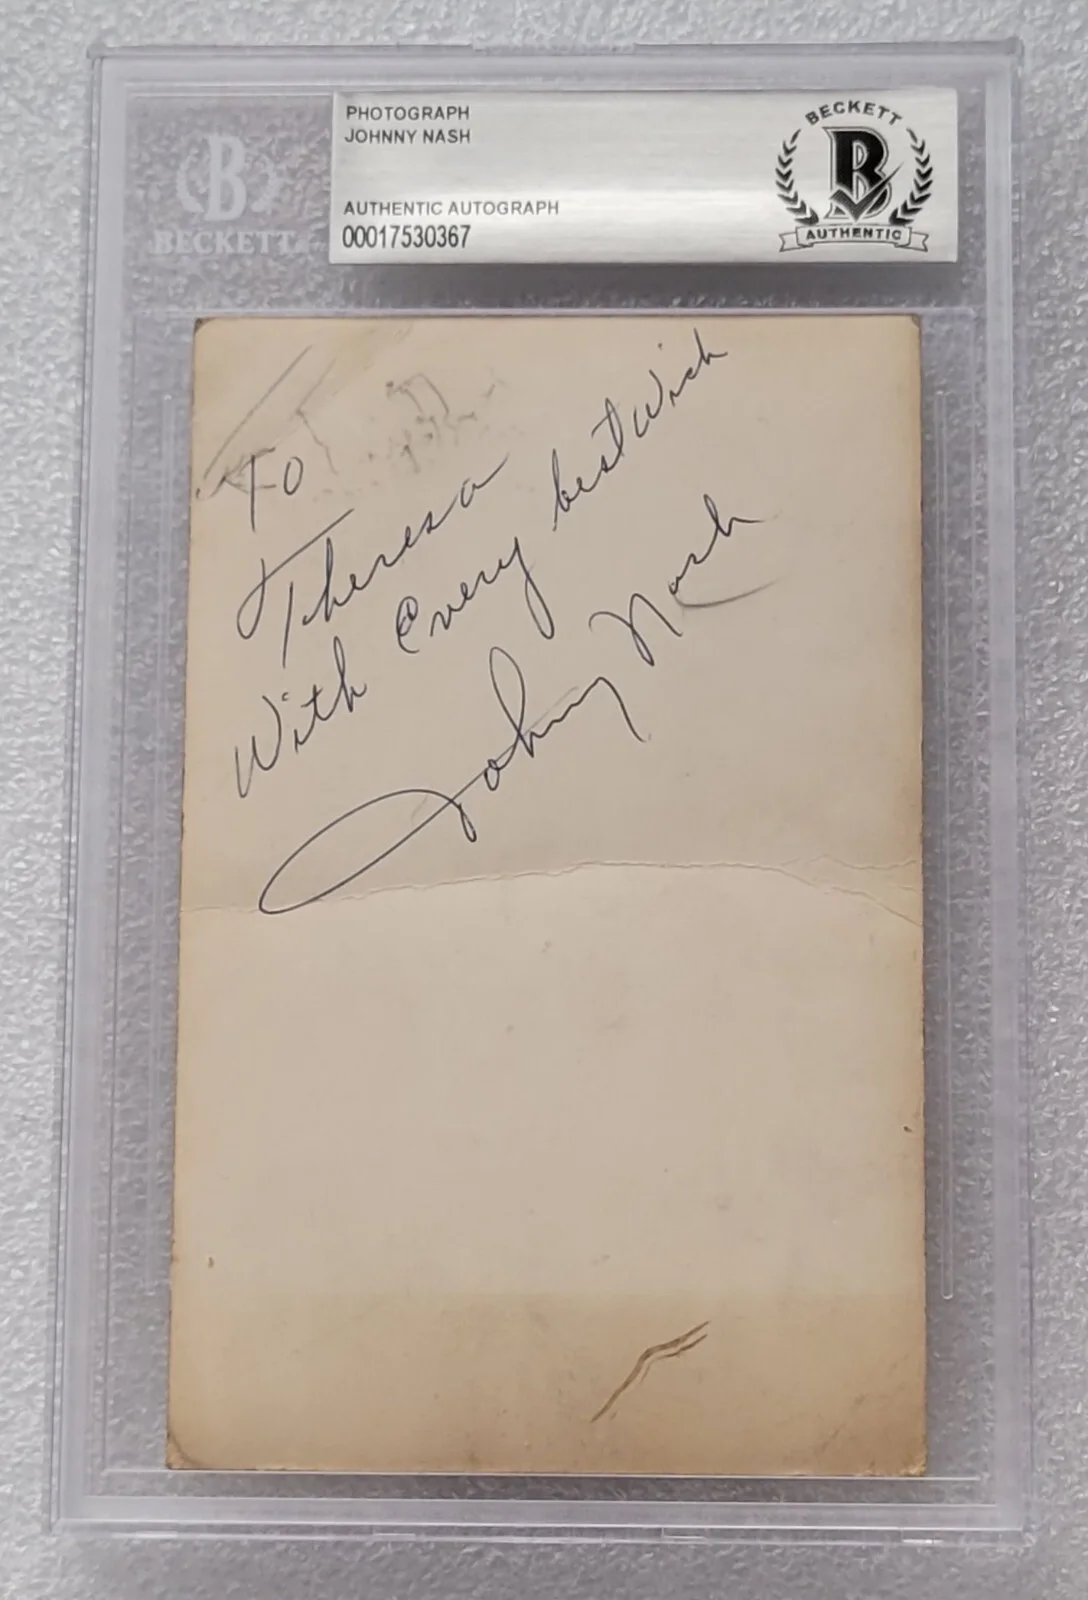 PHOTOGRAPH
JOHNNY NASH
AUTHENTIC AUTOGRAPH
00017530367
BECKETT
B
AUTHENTIC
B
BECKETT
To
Theresa
With Every best Wish
Johnny Nash